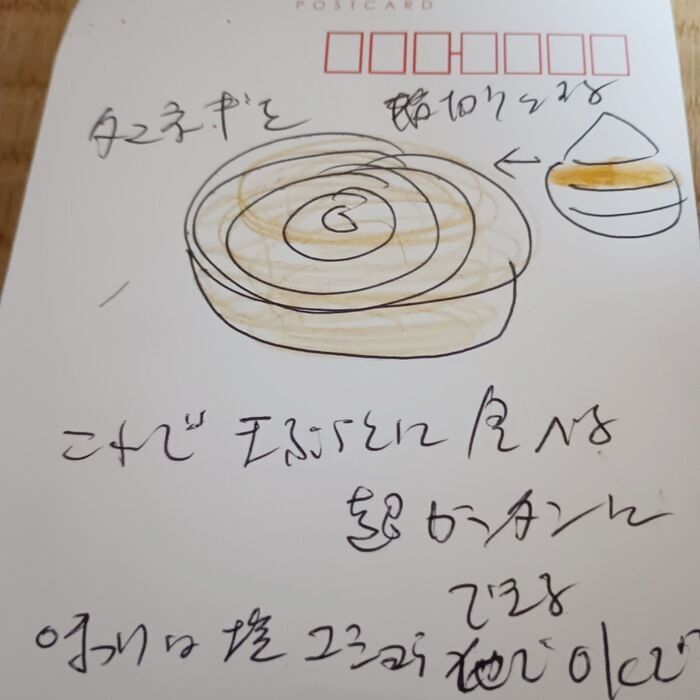 POSTCARD
タマネギを 輪切りにする
これで 天ぷらに
超カンタンに
できる
味つけは 塩コショウ 他でOKで